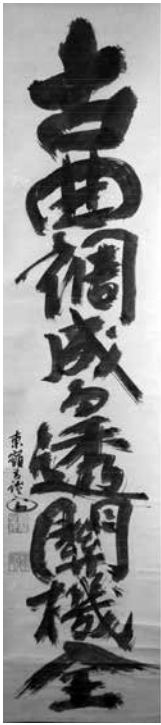 古曲調成透關機全
東嶺